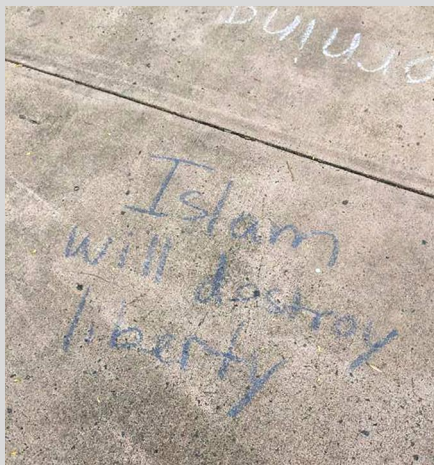 Islam
will destroy
liberty